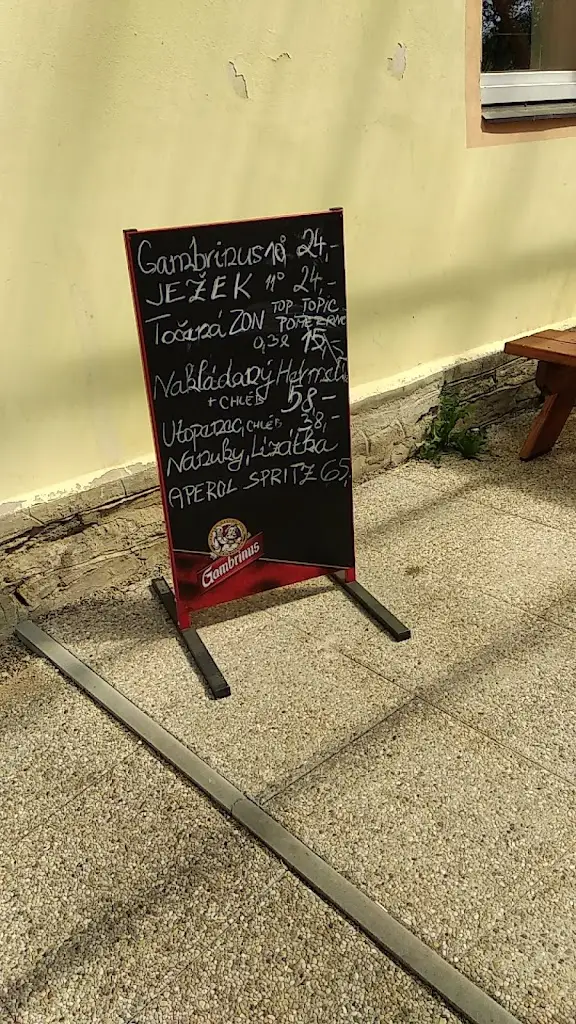 Gambrinus 10° 24,-
JEŽEK 11° 24,-
Točená ZON TOP TOPIC
0,3l 15,-
Nakládaný Hermelín
+ CHLÉB 58-
Utopenec, CHLÉB 38,-
Nanuky, Lízátka
APEROL SPRITZ 65,
Gambrinus